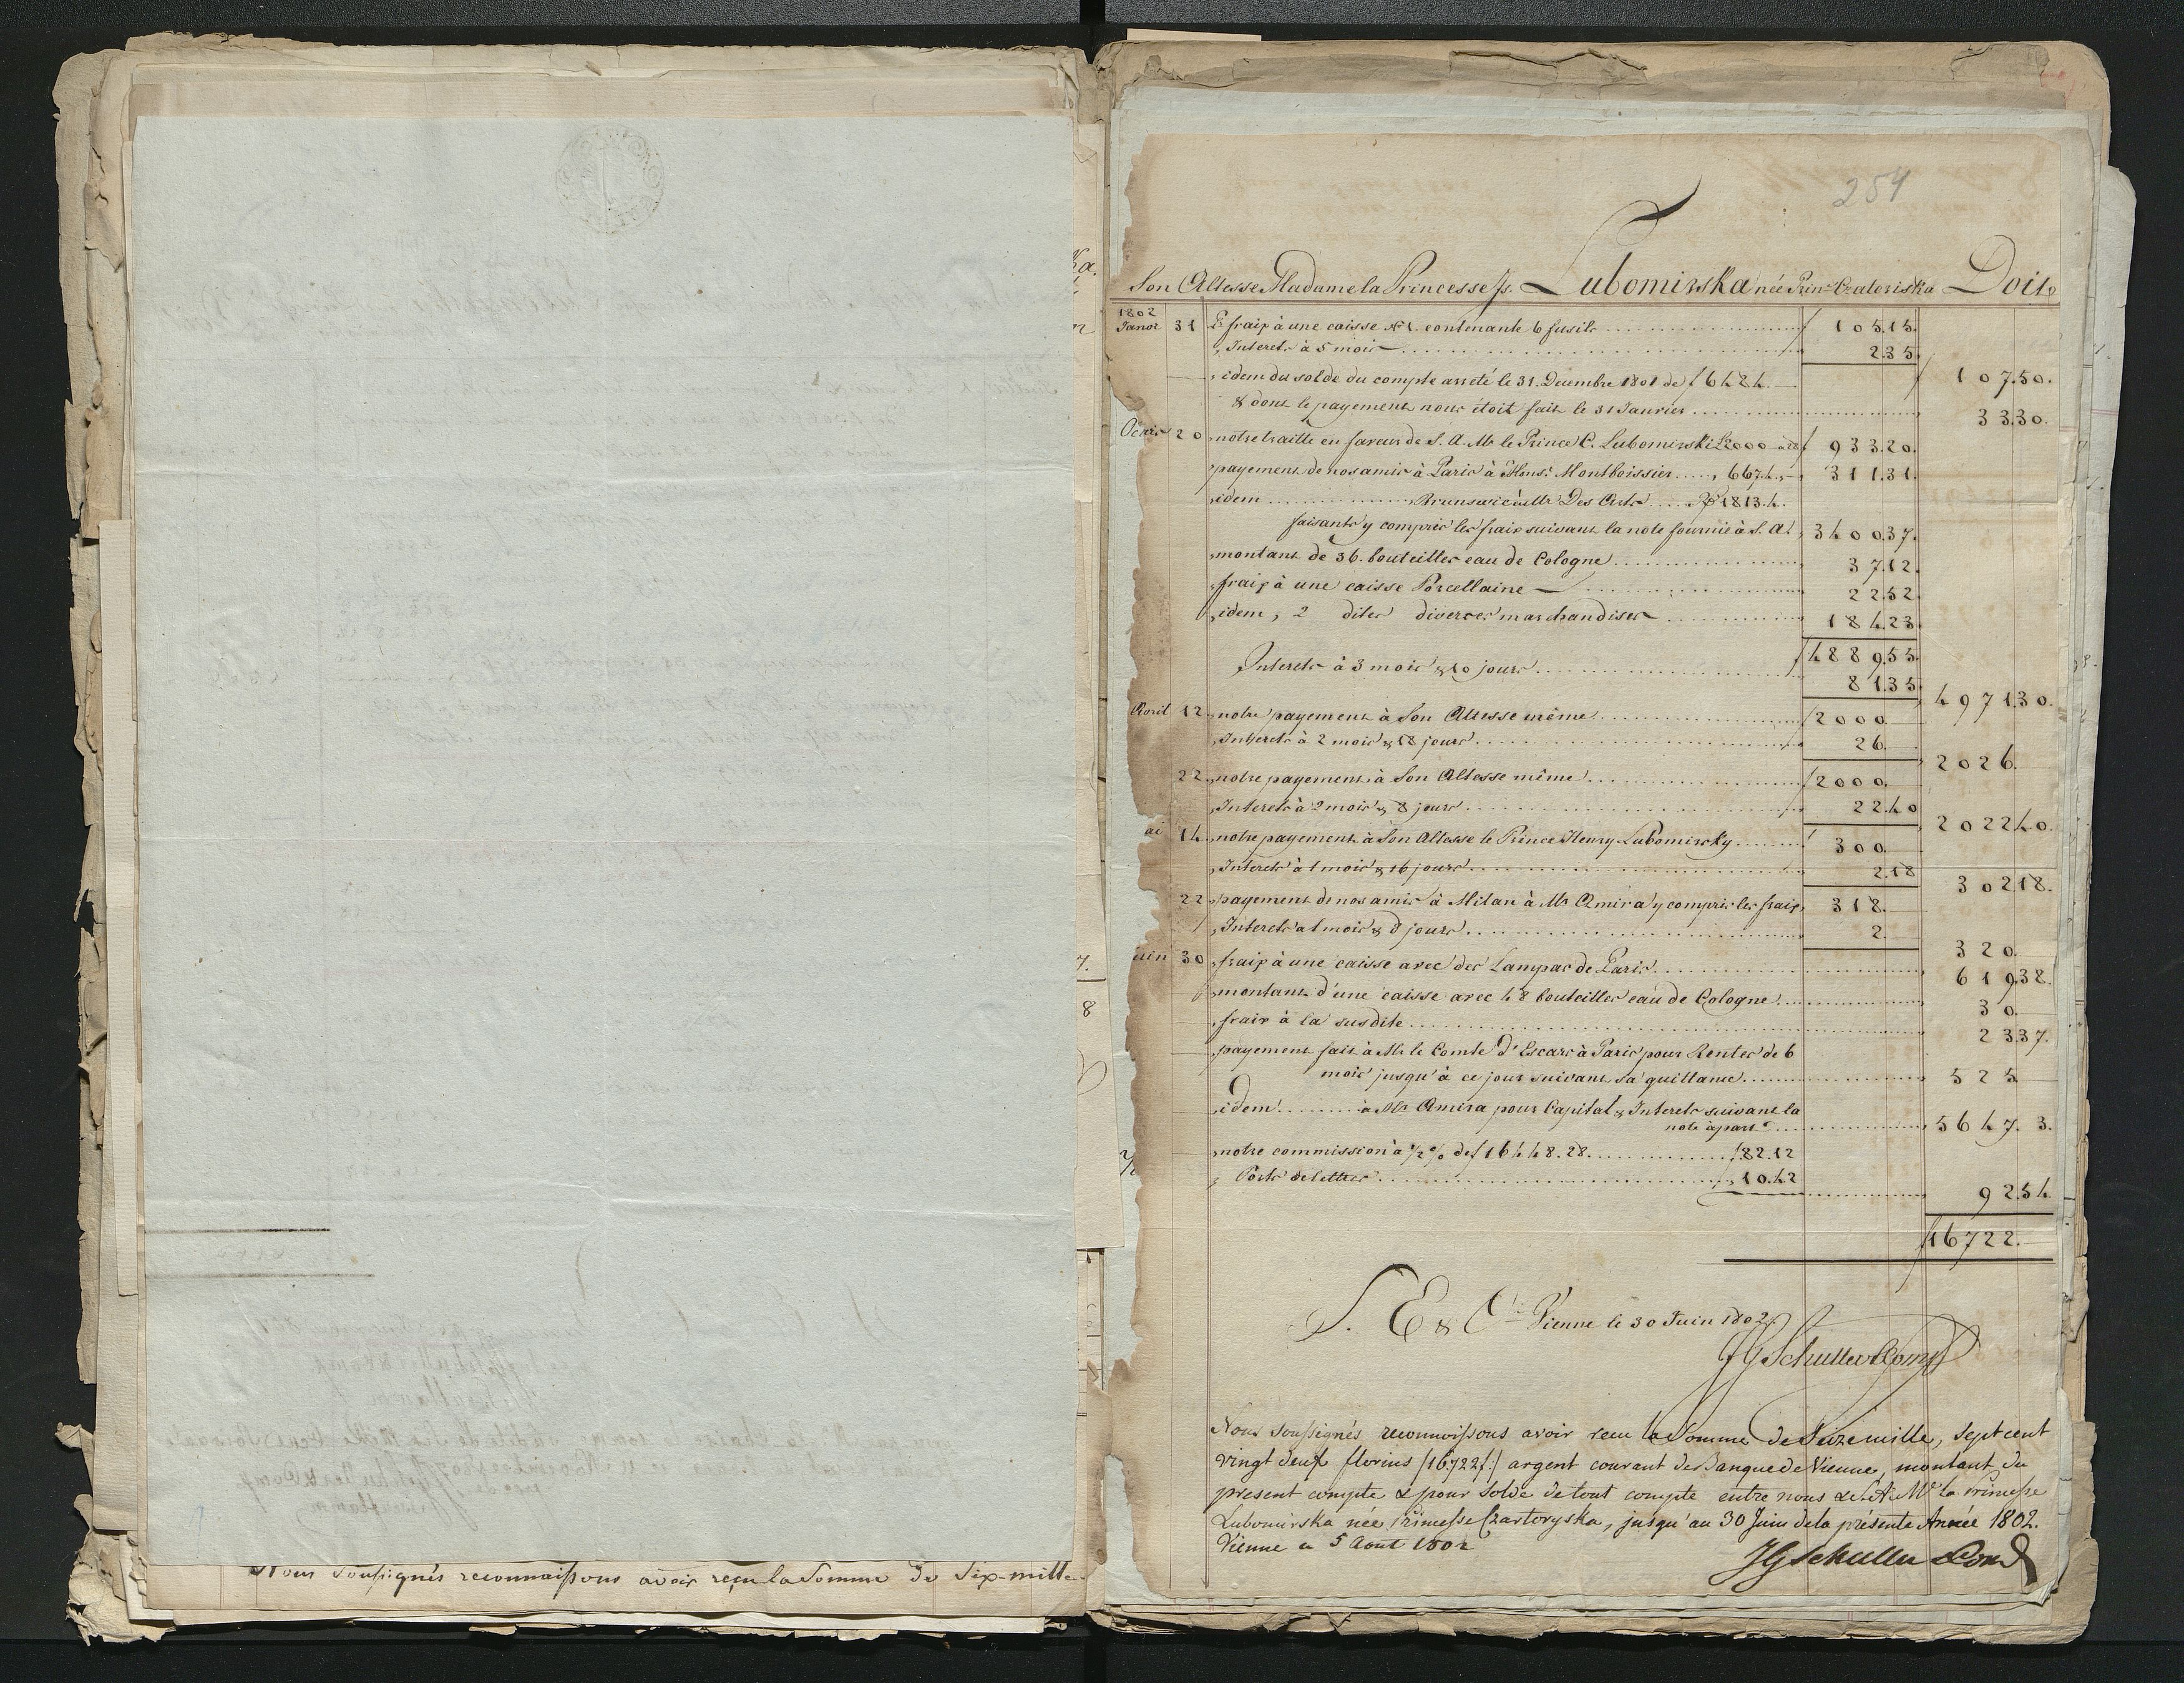 254
Son Altesse Madame la Princesse Is. Lubomirska née Prinsse Czatoriska Doit
1802
Janor 31 frais à une caisse N° 1. contenante 6 fusils f 105.15.
Interets à 5 mois 2.35.
107.50.
idem du solde du compte arreté le 31. Decembre 1801 de f 6424.
& dont le payement nous étoit fait le 31 Janvier 33.30.
20 notre traitte en faveur de S. A. Mr le Prince C. Lubomirski 2000 f 933.20.
payement de nos amis à Paris à Monsr. Montboissier 667.4. 311.31.
idem Brunswic à Mr Des Arts 1813.4.
faisants y compris les frais suivant la note fournie à S. A. 3400.37.
montant de 36. bouteilles eau de Cologne 37.12.
frais à une caisse Porcellaine 22.52.
idem, 2 dites diverces marchandises 184.23.
f 4889.55
Interets à 3 mois & 10 jours 81.35
4971.30.
Avril 12 notre payement à Son Altesse même f 2000
Interets à 2 mois & 18 jours 26.
2026.
22 notre payement à Son Altesse même f 2000.
Interets à 2 mois & 8 jours 22.40
2022.40.
ai 14 notre payement à Son Altesse le Prince Henry Lubomirsky f 300
Interets à 1 mois & 16 jours 2.18
302.18.
22 payement de nos amis à Milan à Mr Amira y compris les frais 318.
Interets a 1 mois & 8 jours 2.
320.
uin 30 frais à une caisse avec des Lampas de Paris 619.38.
montant d'une caisse avec 48 bouteilles eau de Cologne 30.
frais à la susdite 23.37.
payement fait à Mr le Comte d'Escars à Paris pour Rentes de 6
mois jusqu'à ce jour suivant sa quittance 525
idem à Mr Amira pour Capital & Interets suivant la
note àpart 5647. 3.
notre commission à ½ % de f 16448.28. f 82.12
Ports de lettres 10.42
92.54
f 16722.
S. E & Cie Vienne le 30 Juin 1802.
JG Schuller & Comp
Nous soussignés reconnoissons avoir recu la Somme de Seize mille, sept cent
vingt deux florins (16722 f:) argent courant de Banque de Vienne, montant du
present compte & pour Solde de tout compte entre nous & S. A. Me la Princesse
Lubomirska née Princesse Czartoryska, jusqu'au 30 Juin de la présente Année 1802.
Vienne ce 5 Août 1802
JG Schuller & Comp
Nous Soussignés reconnaissons avoir reçu la Somme de Six-mille